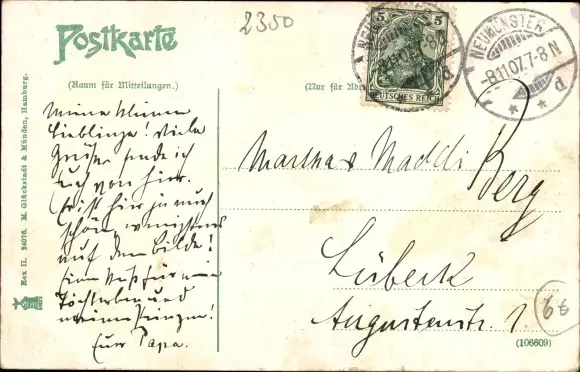 2350
Postkarte
(Raum für Mitteilungen.)
(Nur für Adr
5 5
DEUTSCHES REICH
NEUMÜNSTER
-8.11.07.7-8N
* * d
Meine kleinen
Lieblinge! Viele
Grüße sende ich
Euch von hier.
Es ist hier zu nett
schön, wenigstens
auf dem Bilde!
Einen Kuß für mein
Töchterchen und
meinen Jungen!
Euer Papa.
Martha Maddi Berg
Lübeck
Augustenstr 1.
66
(106609)
Rex II. 24076. M. Glückstadt & Münden, Hamburg.